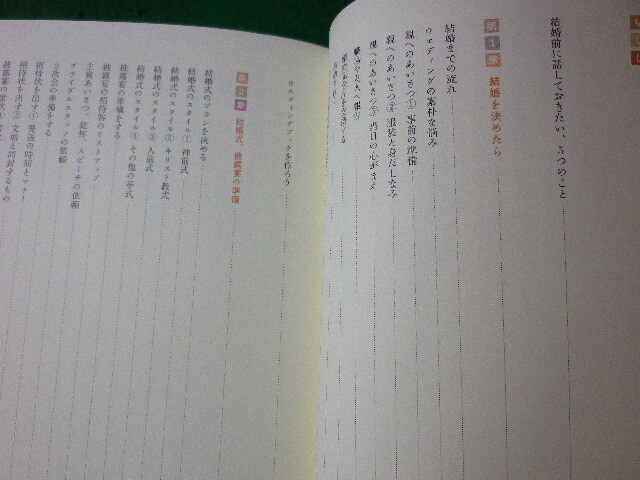 結婚前に話しておきたい、5つのこと
第1章 結婚を決めたら
結婚までの流れ
ウェディングの素朴な悩み
親へのあいさつ① 事前の準備
親へのあいさつ② 服装と身だしなみ
親へのあいさつ③ 当日の心がまえ
ウエディングブックを作ろう
第2章 結婚式、披露宴の準備
結婚式のプランを決める
結婚式のスタイル① 神前式
結婚式のスタイル② キリスト教式
結婚式のスタイル③ 人前式
結婚式のスタイル④ その他の挙式
披露宴の準備をする
披露宴の招待客のリストアップ
主賓あいさつ、乾杯、スピーチの依頼
ブライダルスタッフの依頼
2次会の準備をする
招待状を出す① 発送の時期とマナー
招待状を出す② 文面と同封するもの